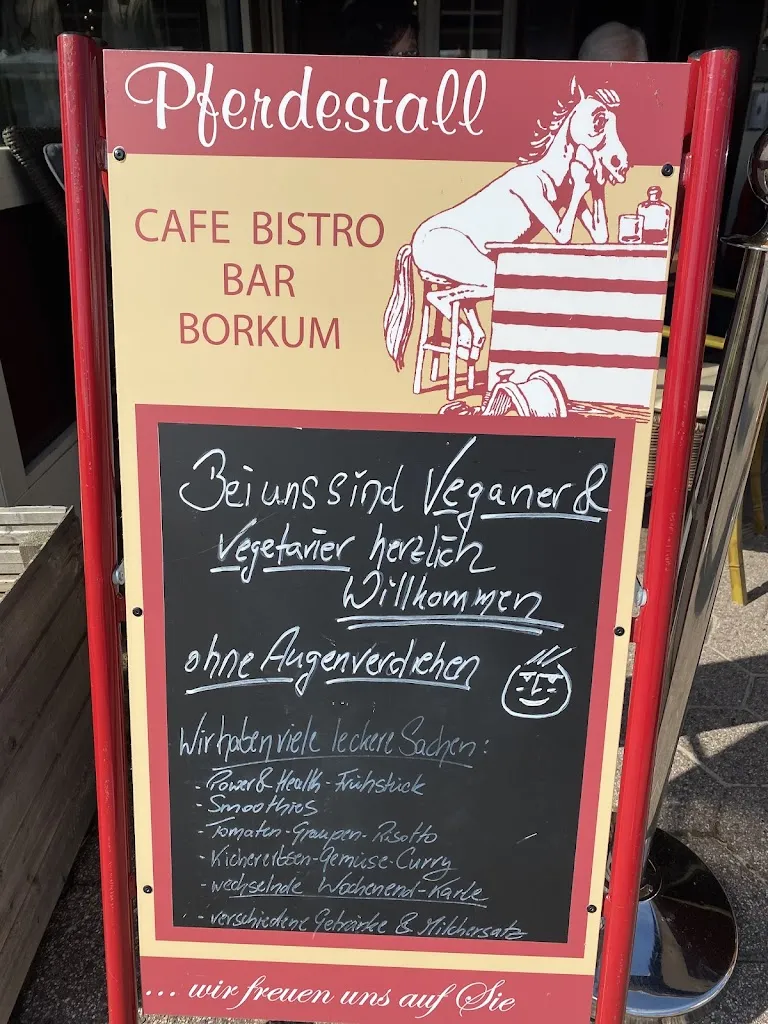 Pferdestall
CAFE BISTRO
BAR
BORKUM
Bei uns sind Veganer &
Vegetarier herzlich
Willkommen
ohne Augenverdrehen
Wir haben viele leckere Sachen:
- Power & Health - Frühstück
- Smoothies
- Tomaten-Graupen-Risotto
- Kichererbsen-Gemüse-Curry
- wechselnde Wochenend-Karte
- verschiedene Getränke & Milchersatz
... wir freuen uns auf Sie